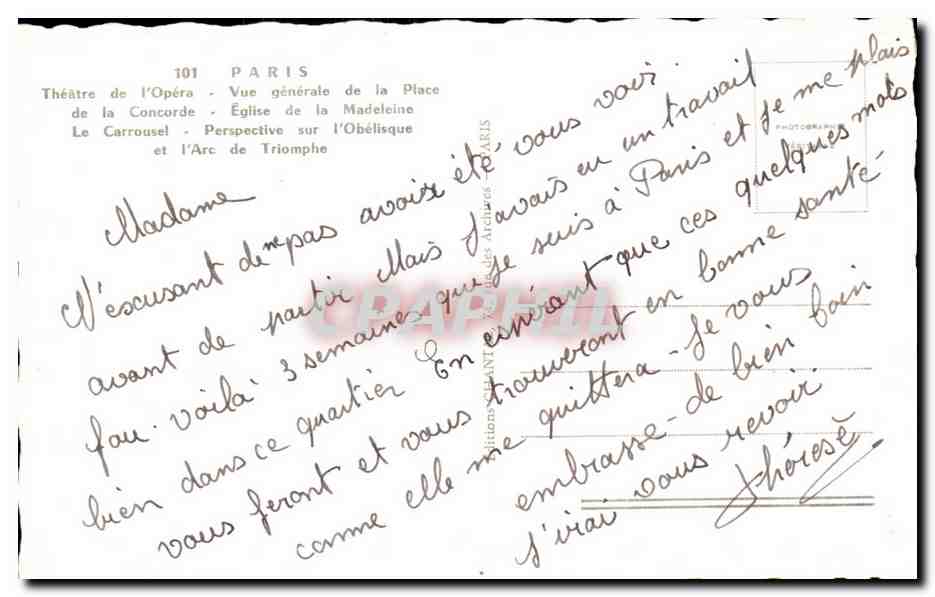 101 PARIS
Théâtre de l'Opéra - Vue générale de la Place
de la Concorde - Église de la Madeleine
Le Carrousel - Perspective sur l'Obélisque
et l'Arc de Triomphe
Madame
M'éscusant de ne pas avoir été vous voir
avant de partir Mais j'avais eu un travail
fou. voilà 3 semaines que je suis à Paris et je me plais
bien dans ce quartier En espérant que ces quelques mots
vous feront et vous trouveront en bonne santé
comme elle me quittera - Je vous
embrasse - de bien loin
j'irai vous revoir
Thérèse
PHOTOGRAPHIE
des Archives PARIS
CPAPHIL